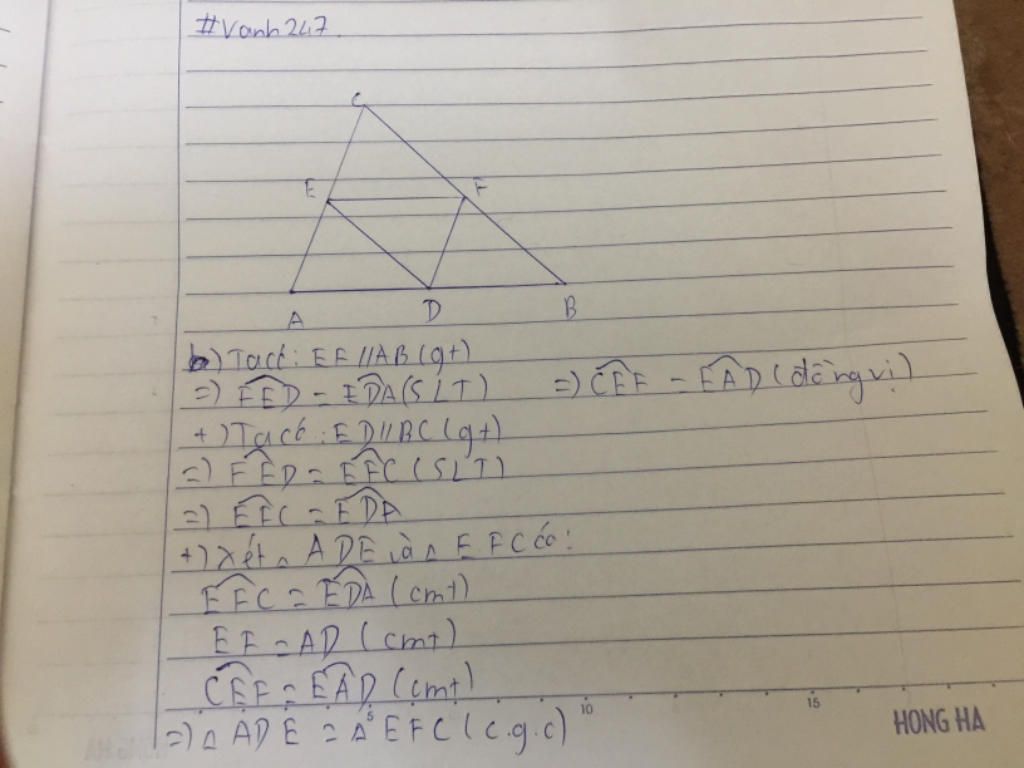 #Vanh247.
C
E F
A D B
b) Ta có: EF//AB (gt)
=) FED = EDA (SLT) =) CEF = EAD (đồng vị)
+) Ta có: ED//BC (gt)
=) FED = EFC (SLT)
=) EFC = EDA
+) Xét △ ADE và △ EFC có:
EFC = EDA (cmt)
EF = AD (cmt)
CEF = EAD (cmt)
=) △ ADE = △ EFC (c.g.c)
5 10 15
HONG HA